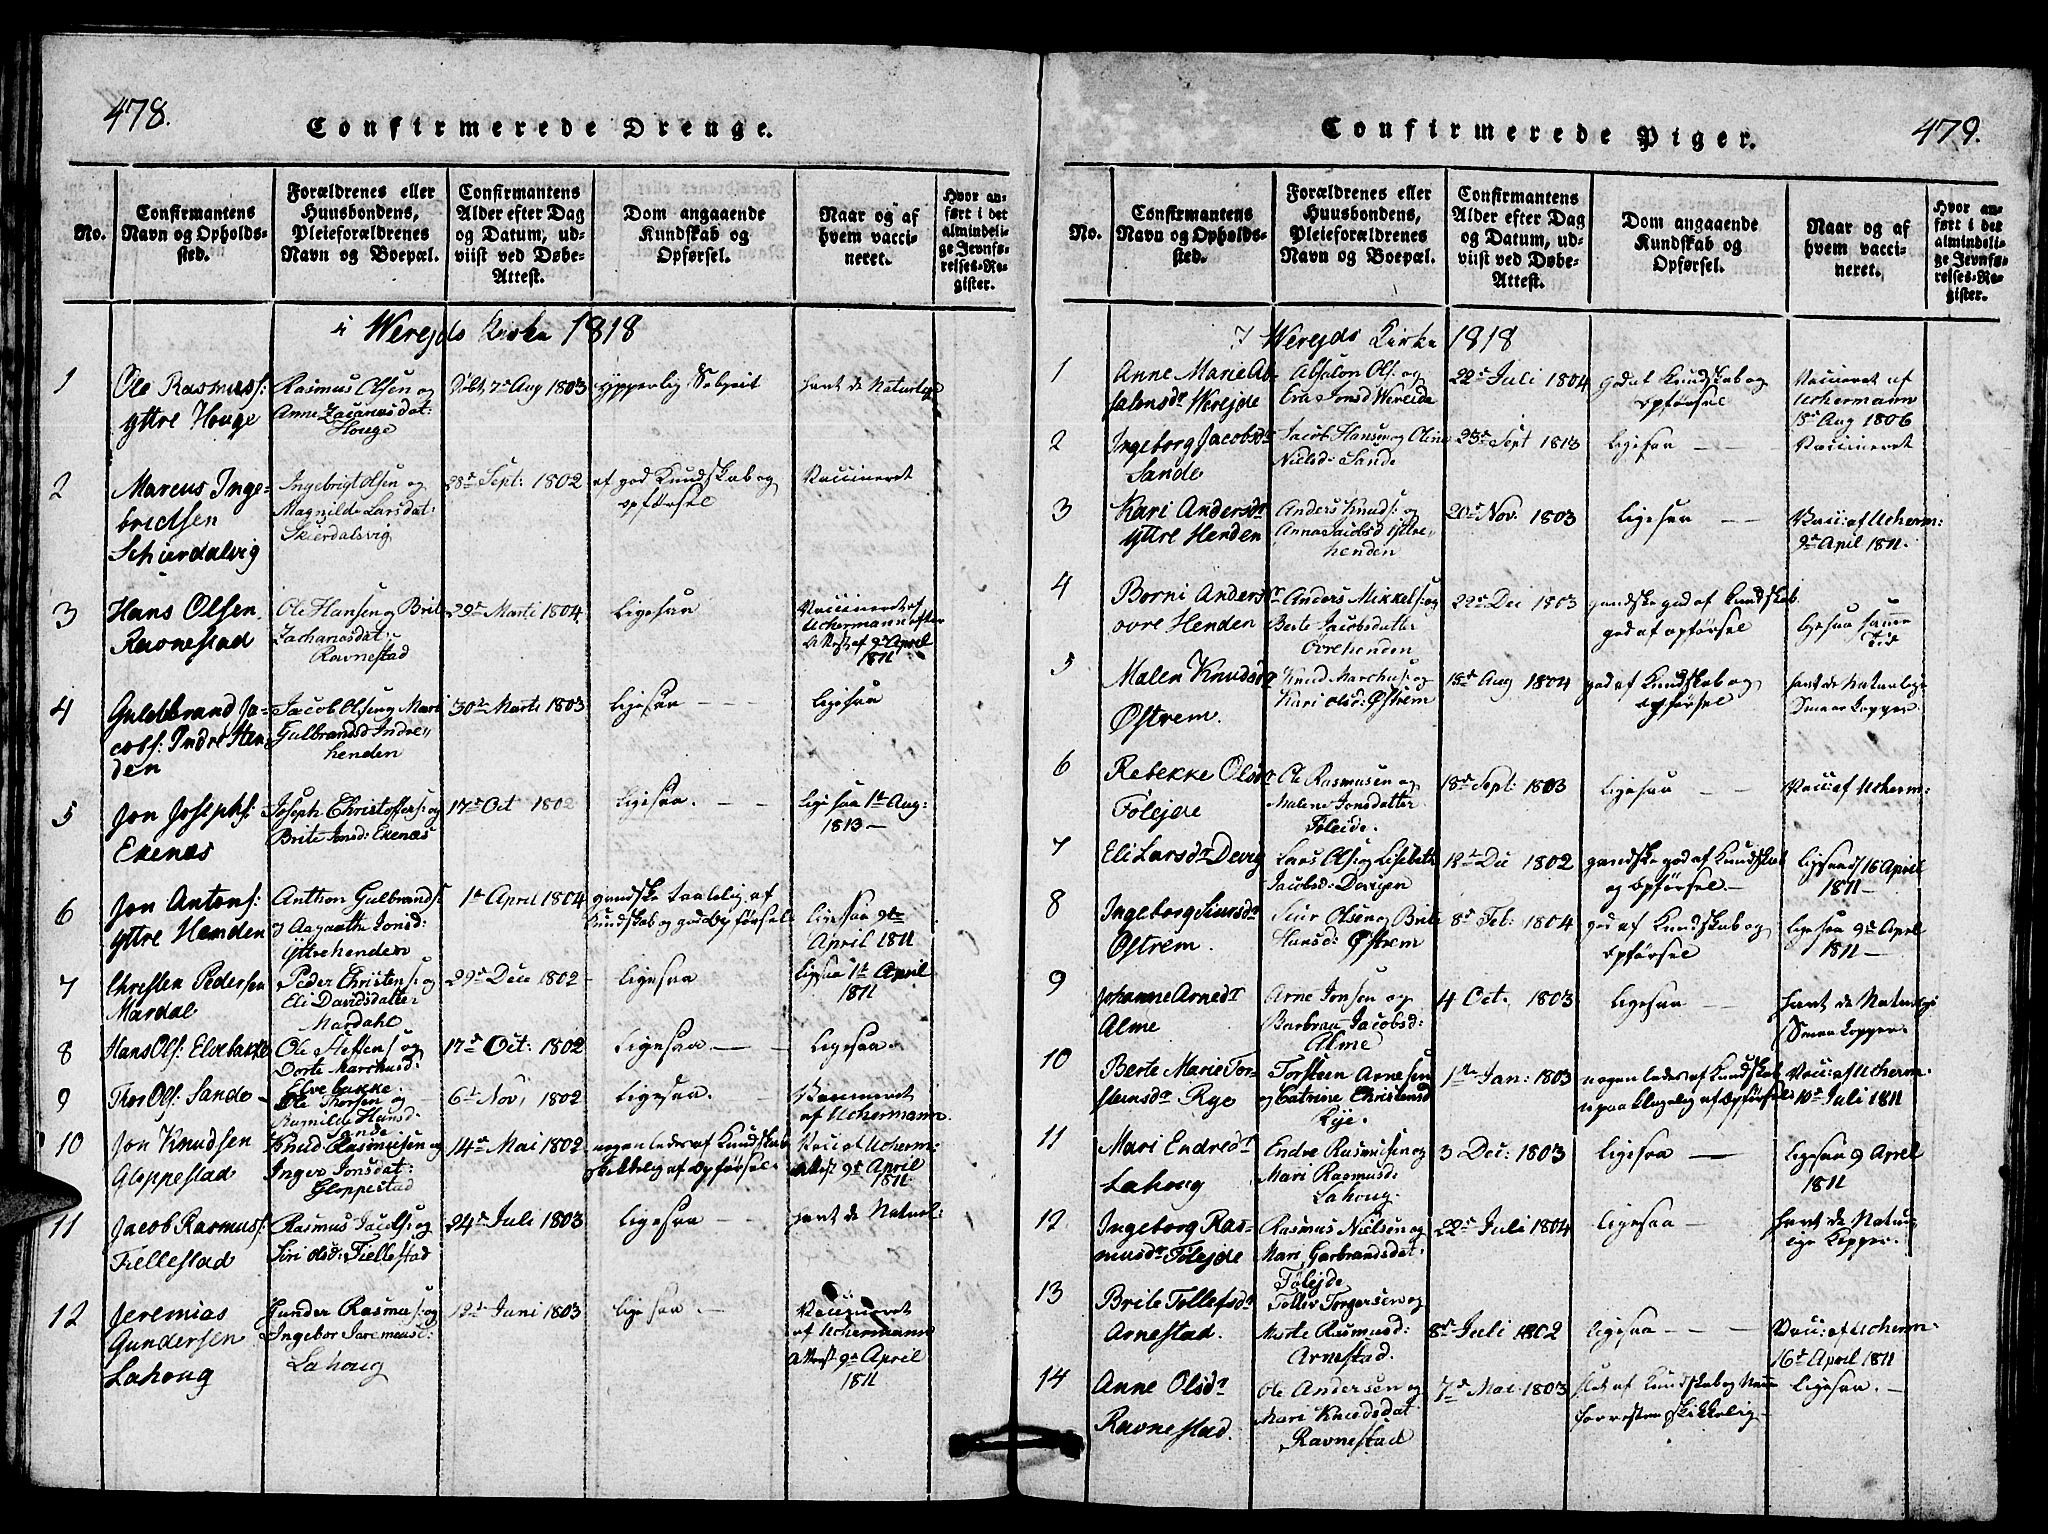 478.
Confirmerede Drenge.
No.
Confirmantens
Navn og Opholds-
sted.
Forældrenes eller
Huusbondens,
Pleieforældrenes
Navn og Boepæl.
Confirmantens
Alder efter Dag
og Datum, ud-
viist ved Døbe-
Attest.
Dom angaaende
Kundskab og
Opførsel.
Naar og af
hvem vacci-
neret.
Hvor an-
ført i det
almindeli-
ge Jevnfø-
relses-Re-
gister.
i Werejds Kirke 1818
1
Ole Rasmuss:
yttre Houge
Rasmus Olsen og
Anne Zacariasdat:
Houge
Døbt 7de Aug 1803
ypperlig
havt de Naturlige
2
Marcus Inge-
bridtsen
Schierdalsvig
Ingebrigt Olsen og
Magnilde Larsdat:
Skierdalsvig
28de Sept: 1802
af god Kundskab og
opførsel
Vaccineret
3
Hans Olsen
Ravnestad
Ole Hansen og Brite
Zachariasdat:
Ravnestad
29de Marti 1804
Ligesaa
Vaccineret af
Uchermann efter
Attest af 9de April
1811
4
Guldbrand Ja-
cobs: Indre Hen-
den
Jacob Olsen og Mari
Gulbrandsd Indre
henden
30te Marti 1803
Ligesaa - - -
Ligesaa
5
Jon Josephs:
Ekenæs
Joseph Christoffers: og
Brite Jonsd: Ekenæs
17de Oct 1802
Ligesaa. - -
Ligesaa 1te Aug:
1813 -
6
Jon Antons:
yttre Henden
Anthon Gulbrands:
og Aagaathe Jonsd:
Yttrehenden
1te April 1804
gandske taalelig af
Kundskab og god Opførsel
Ligesaa 9de
April 1811
7
Christen Pedersen
Mardal
Peder Christens: og
Eli Davidsdatter
Mardahl
29de Dece 1802
Ligesaa
Ligesaa 1te April
1811
8
Hans Ols: Elvebakke
Ole Steffens: og
Dorte Marchusd:
Elvebakke.
17de Oct: 1802
Ligesaa. - -
Ligesaa.
9
Thor Ols: Sande
Ole Thorsen og
Ragnilde Hansd:
Sande
6te Nov, 1802
Ligesaa. -
Vaccineret
af Uchermann.
10
Jon Knudsen
Gloppestad
Knud Rasmusen og
Inger Jonsdat:
Gloppestad
14de Mai 1802
nogenledes af Kundskab
skikkelig af Opførsel
Vacc: af Ucherm:
Attest 9de April
1811.
11
Jacob Rasmuss:
Fiellestad
Rasmus Jacobs: og
Siri Olsd: Fiellestad
24de Juli 1803
Ligesaa - -
havt de Naturl-
12
Jeremias
Gundersen
Lahoug
Gunder Rasmus: og
Ingebor Jaremiasd:
Lahoug
12te Juni 1803
Ligesaa. -
Vaccineret
af Uchermann
Attest 9de April
1811
479.
Confirmerede Piger.
No.
Confirmantens
Navn og Opholds-
sted.
Forældrenes eller
Huusbondens,
Pleieforældrenes
Navn og Boepæl.
Confirmantens
Alder efter Dag
og Datum, ud-
viist ved Døbe-
Attest.
Dom angaaende
Kundskab og
Opførsel.
Naar og af
hvem vacci-
neret.
Hvor an-
ført i det
almindeli-
ge Jevnfø-
relses-Re-
gister.
I Werejds Kirke 1818
1
Anne Marie Ab-
salonsdr Werejde
Absalon Ols: og
Eva Jonsd Wereide
22de Juli 1804
god af Kundskab og
opførsel
Vaccineret af
Uchermann
18de Aug 1806
2
Ingeborg Jacobsdr
Sande
Jacob Hansen og Oline
Nielsd: Sande
23de Sept 1813
Ligesaa - -
Vaccineret
3
Kari Andersdr
yttre Henden
Anders Knuds: og
Anna Jacobsd Yttre
henden
20de Nov. 1803
Ligesaa - -
Vacc: af Ucherm:
9de April 1811.
4
Borni Andersdr
ovre Henden
Anders Mikkels: og
Berte Jacobsdatter
Ovrehenden
22de Dec 1803
gandske god af Kundskab
god af opførsel
Ligesaa samme
Tid
5
Malen Knudsdr
Østrem.
Knud Marchus: og
Kari Olsd: Østrem
18de Aug 1804
god af Kundskab og
opførsel
havt de Naturlige
Smaa kopper
6
Rebekke Olsdr
Følejde
Ole Rasmusen og
Malene Jonsdatter
Føleide.
18de Sept: 1803
Ligesaa - -
Vacc: af Ucherm:
7
Eli Larsdr Devig
Lars Ols: og Lisebeth
Jacobsd:
12te Dec 1802
gandske god af Kundskab
og Opførsel. -
Ligesaa 16 April
1811 -
8
Ingeborg Siursdr
Ostrem.
Siur Olsen og Brite
Hansd: Østrem
8de Feb: 1804
god af Kundskab og
opførsel
Ligesaa 9de April
1811 -
9
Johanne Arnedr
Alme
Arne Jonsen og
Barbraa Jacobsd:
Alme
4 Oct. 1803
Ligesaa -
havt de Naturlige
Smaa kopper
10
Berte Marie Tor-
stensdr Rye
Torsteen Arnesen
og Catrine Christensd
Rye.
1te Jan: 1803
nogenledes af Kundskab
upaaklagelig af Opførsel
Vacc: af Ucherm.
10de Juli 1811
11
Mari Endredr
Lahoug
Endre Rasmusen og
Mari Rasmusd:
Lahoug.
3 Dec: 1803
Ligesaa -
Ligesaa 9 April
1811
12
Ingeborg Ras-
musdr Følejde
Rasmus Nielsen og
Mari Garbrandsdat:
Følejde
22de Juli 1804
Ligesaa -
havt de Natur-
lige Kopper.
13
Brite Tollefsdr
Arnestad.
Tollev Torgersen og
Marte Rasmusd:
Arnestad.
8de Juli 1802
Ligesaa - - -
Vacc: af Ucherm:
16de April 1811
14
Anne Olsdr
Ravnestad.
Ole Andersen og
Mari Knudsdat
Ravnestad
7de Mai 1803
slet af Kundskab og
forresten skikkelig
Ligesaa. -